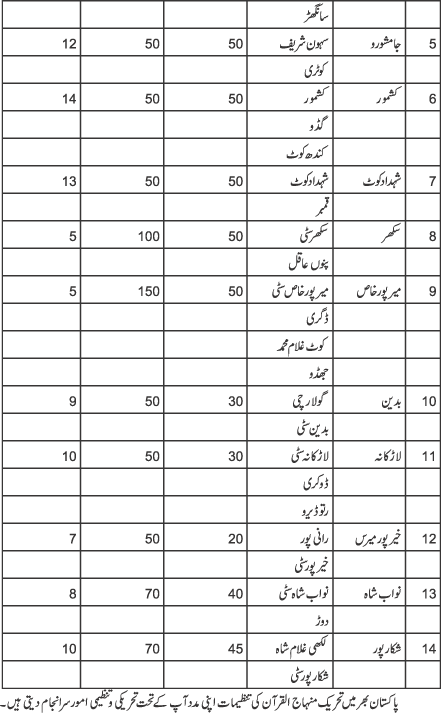 سانگھڑ
5 جامشورو سہون شریف 50 50 12
کوٹری
6 کشمور کشمور 50 50 14
گڈو
کندھ کوٹ
7 شہدادکوٹ شہدادکوٹ 50 50 13
قمبر
8 سکھر سکھر سٹی 50 100 5
پنوں عاقل
9 میرپور خاص میرپور خاص سٹی 50 150 5
ڈگری
کوٹ غلام محمد
جھڈو
10 بدین گولارچی 30 50 9
بدین سٹی
11 لاڑکانہ لاڑکانہ سٹی 30 50 10
ڈوکری
رتو ڈیرو
12 خیرپور میرس رانی پور 20 50 7
خیرپور سٹی
13 نواب شاہ نواب شاہ سٹی 40 70 8
دوڑ
14 شکارپور لکھی غلام شاہ 45 70 10
شکارپور سٹی
پاکستان بھر میں تحریک منہاج القرآن کی تنظیمات اپنی مدد آپ کے تحت تحریکی و تنظیمی امور سرانجام دیتی ہیں۔